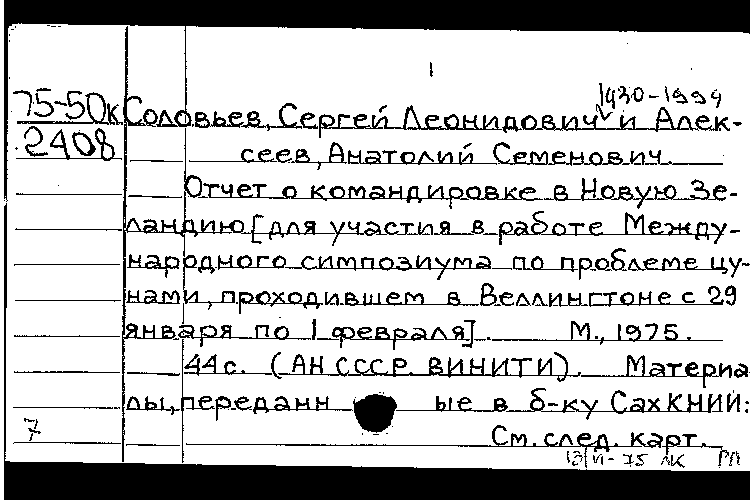 1
1930-1994
75-50к Соловьев, Сергей Леонидович и Алек-
2408 сеев, Анатолий Семенович.
Отчет о командировке в Новую Зе-
ландию [для участия в работе Между-
народного симпозиума по проблеме цу-
нами, проходившем в Веллингтоне с 29
января по 1 февраля]. М., 1975.
44с. (АН СССР. ВИНИТИ). Материа
лы, переданн ые в б-ку СахКНИИ:
7 См. след. карт.
75 ЛК РП